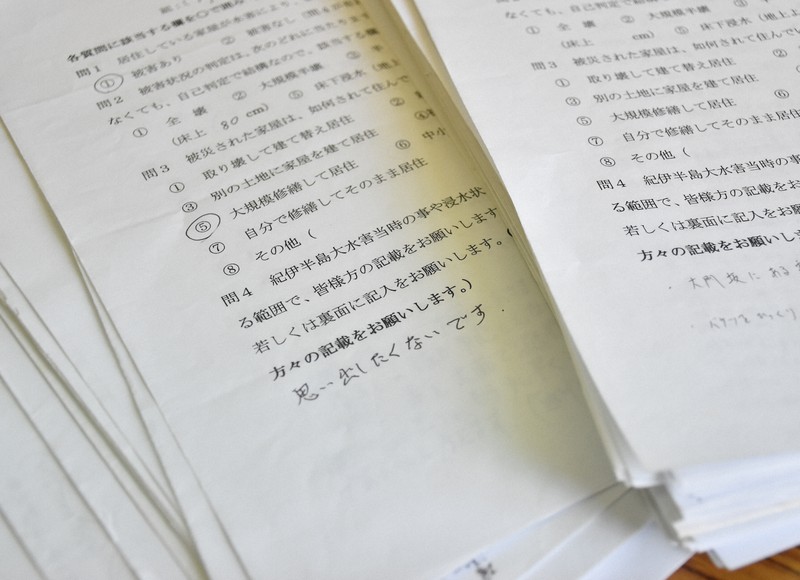 各質問に該当する欄を〇で囲み
問1 居住している家屋が水害により、
① 被害あり ② 被害なし
問2 被害状況の判定は、次のどれに当たります
なくても、自己判定で結構なので、該当する欄
① 全壊 ② 大規模半壊 ③ 半
(床上 80 cm) ⑤ 床下浸水 (地上
問3 被災された家屋は、如何されて住んで
① 取り壊して建て替え居住 ②
③ 別の土地に家屋を建て居住 ④
⑤ 大規模修繕して居住 ⑥ 中小
⑦ 自分で修繕してそのまま居住
⑧ その他(
問4 紀伊半島大水害当時の事や浸水状
る範囲で、皆様方の記載をお願いします
若しくは裏面に記入をお願いします。(
方々の記載をお願いします。)
思い出したくないです.
なくても、自己判定で
① 全壊 ② 大規模半壊 ③
(床上 cm) ⑤ 床下浸水 (地上
問3 被災された家屋は、如何されて住んで
① 取り壊して建て替え居住 ②
③ 別の土地に家屋を建て居住
⑤ 大規模修繕して居住 ⑥
⑦ 自分で修繕してそのまま居住
⑧ その他(
問4 紀伊半島大水害当時の事
る範囲で、皆様方の記載をお
若しくは裏面に記入をお願い
方々の記載をお願いしま